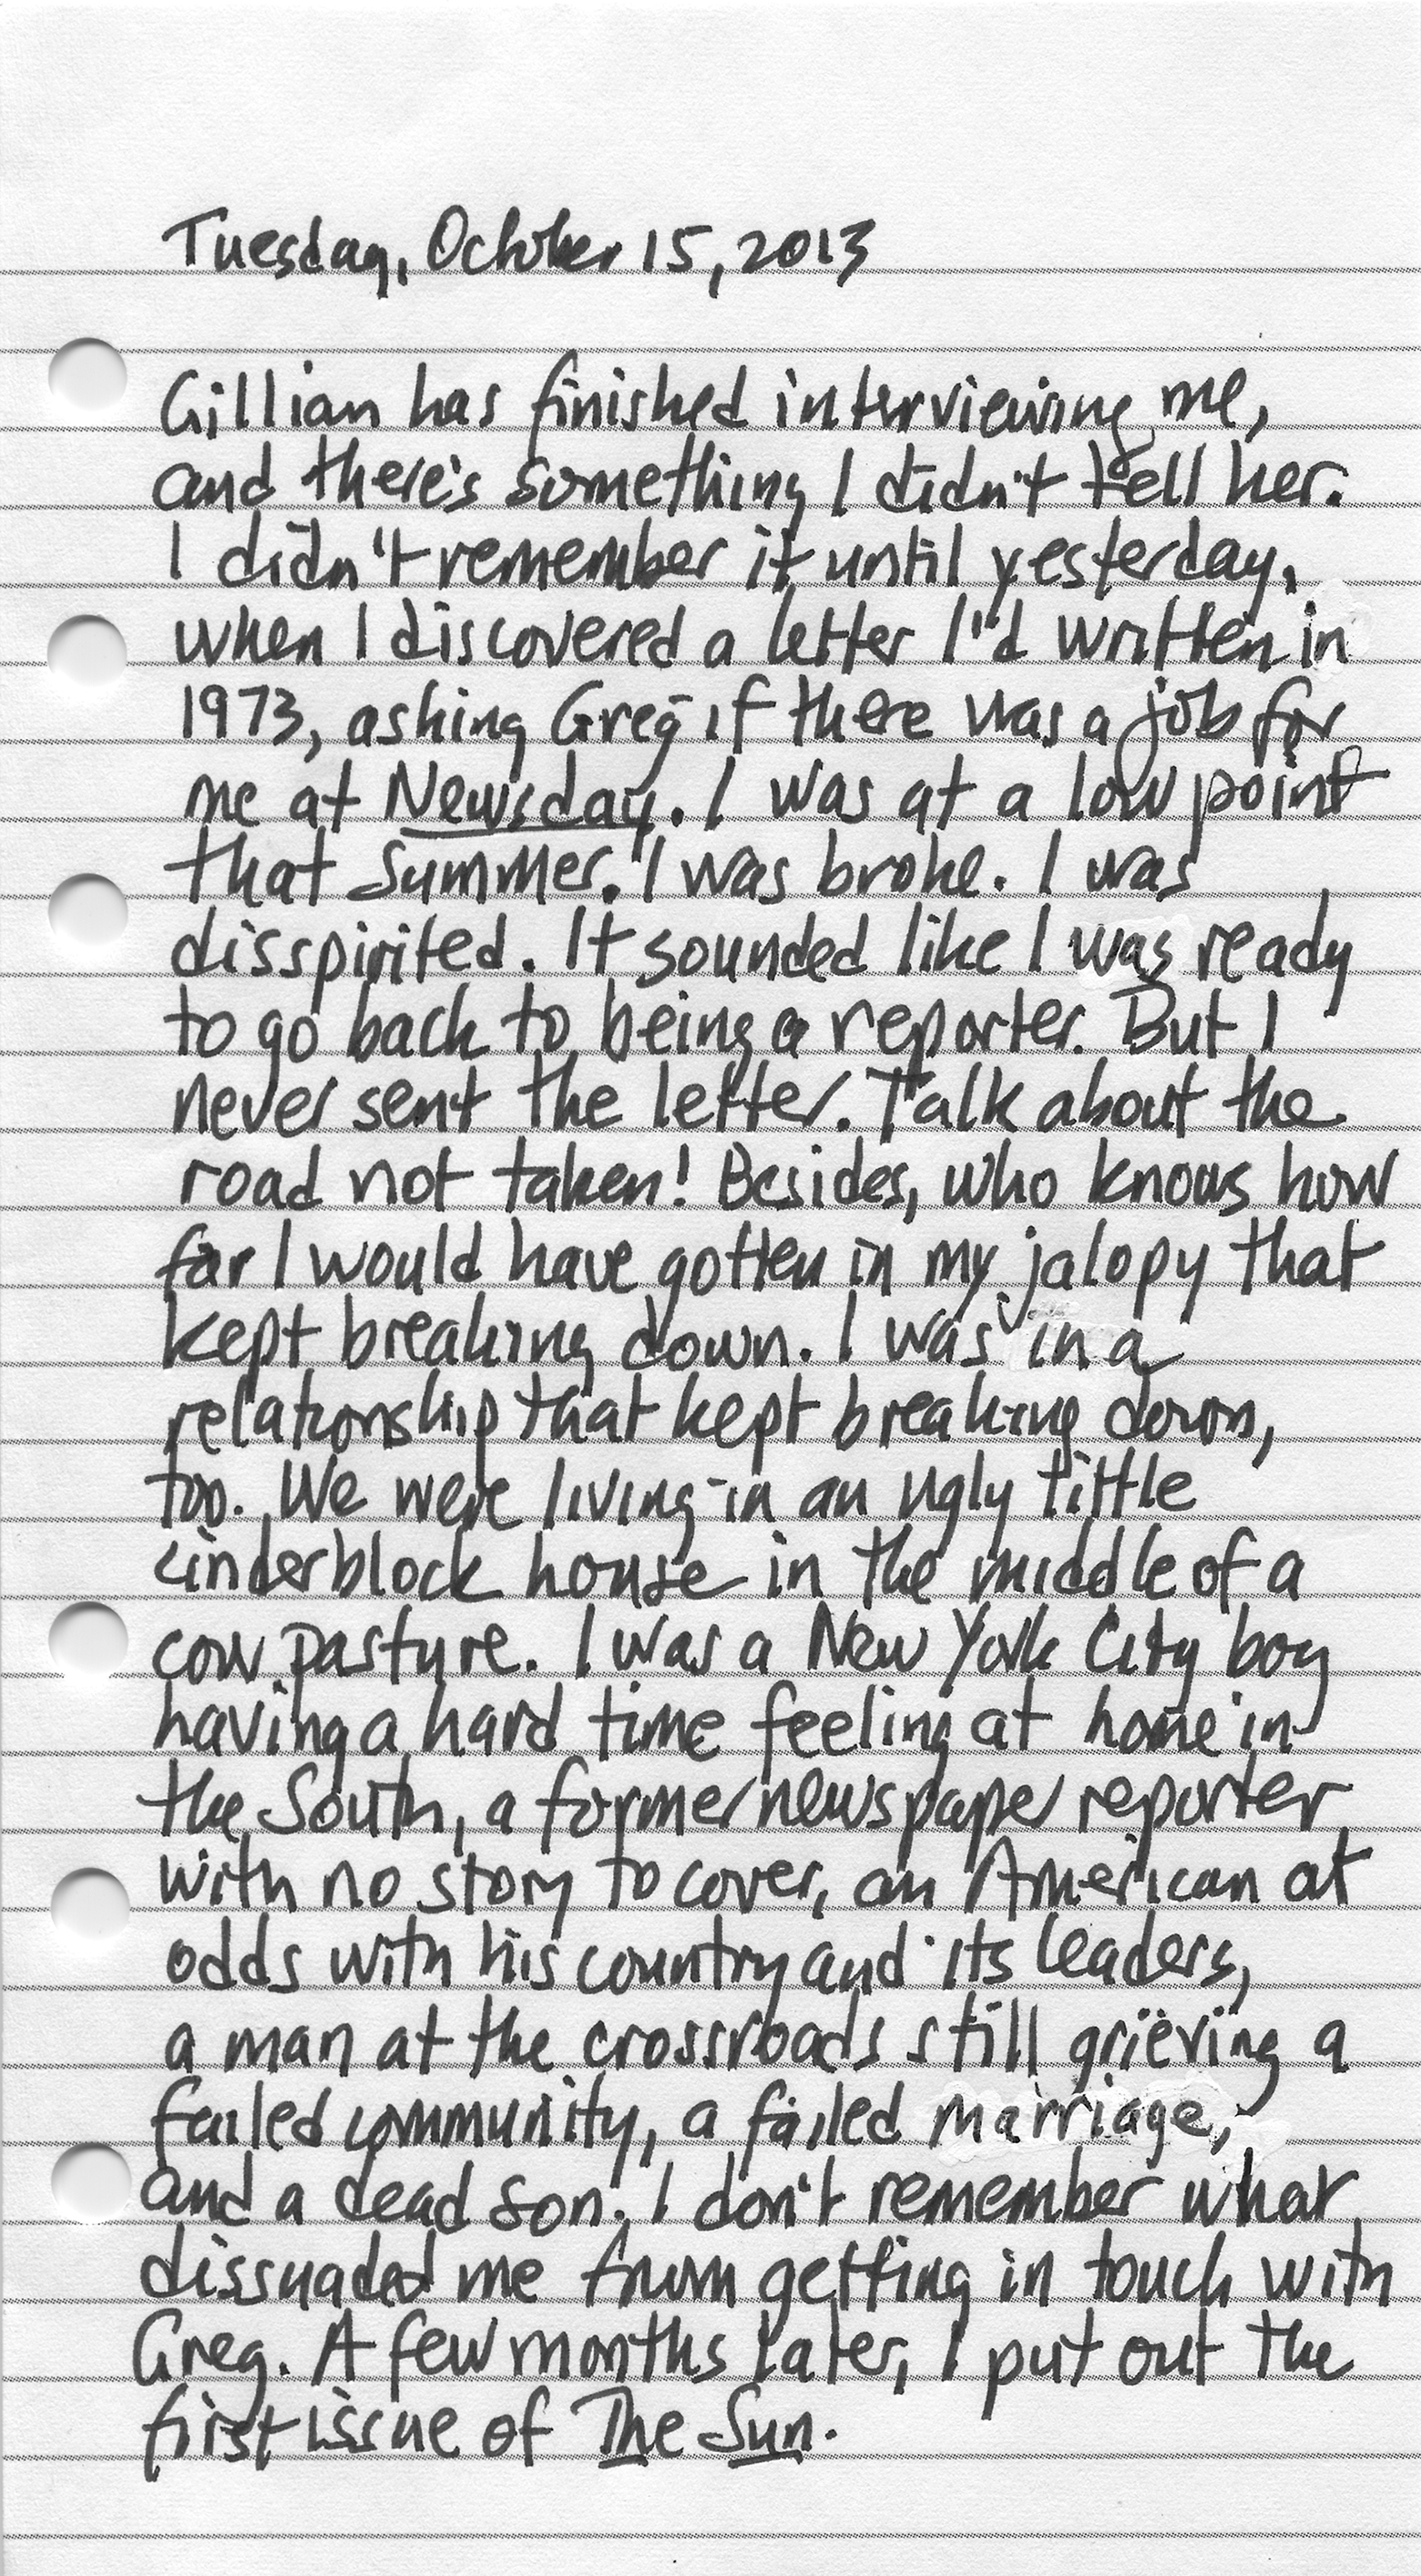 Tuesday, October 15, 2013
Gillian has finished interviewing me,
and there's something I didn't tell her.
I didn't remember it until yesterday,
when I discovered a letter I'd written in
1973, asking Greg if there was a job for
me at Newsday. I was at a low point
that summer. I was broke. I was
disspirited. It sounded like I was ready
to go back to being a reporter. But I
never sent the letter. Talk about the
road not taken! Besides, who knows how
far I would have gotten in my jalopy that
kept breaking down. I was in a
relationship that kept breaking down,
too. We were living in an ugly little
cinderblock house in the middle of a
cow pasture. I was a New York City boy
having a hard time feeling at home in
the South, a former newspaper reporter
with no story to cover, an American at
odds with his country and its leaders,
a man at the crossroads still grieving a
failed community, a failed marriage,
and a dead son. I don't remember what
dissuaded me from getting in touch with
Greg. A few months later, I put out the
first issue of The Sun.